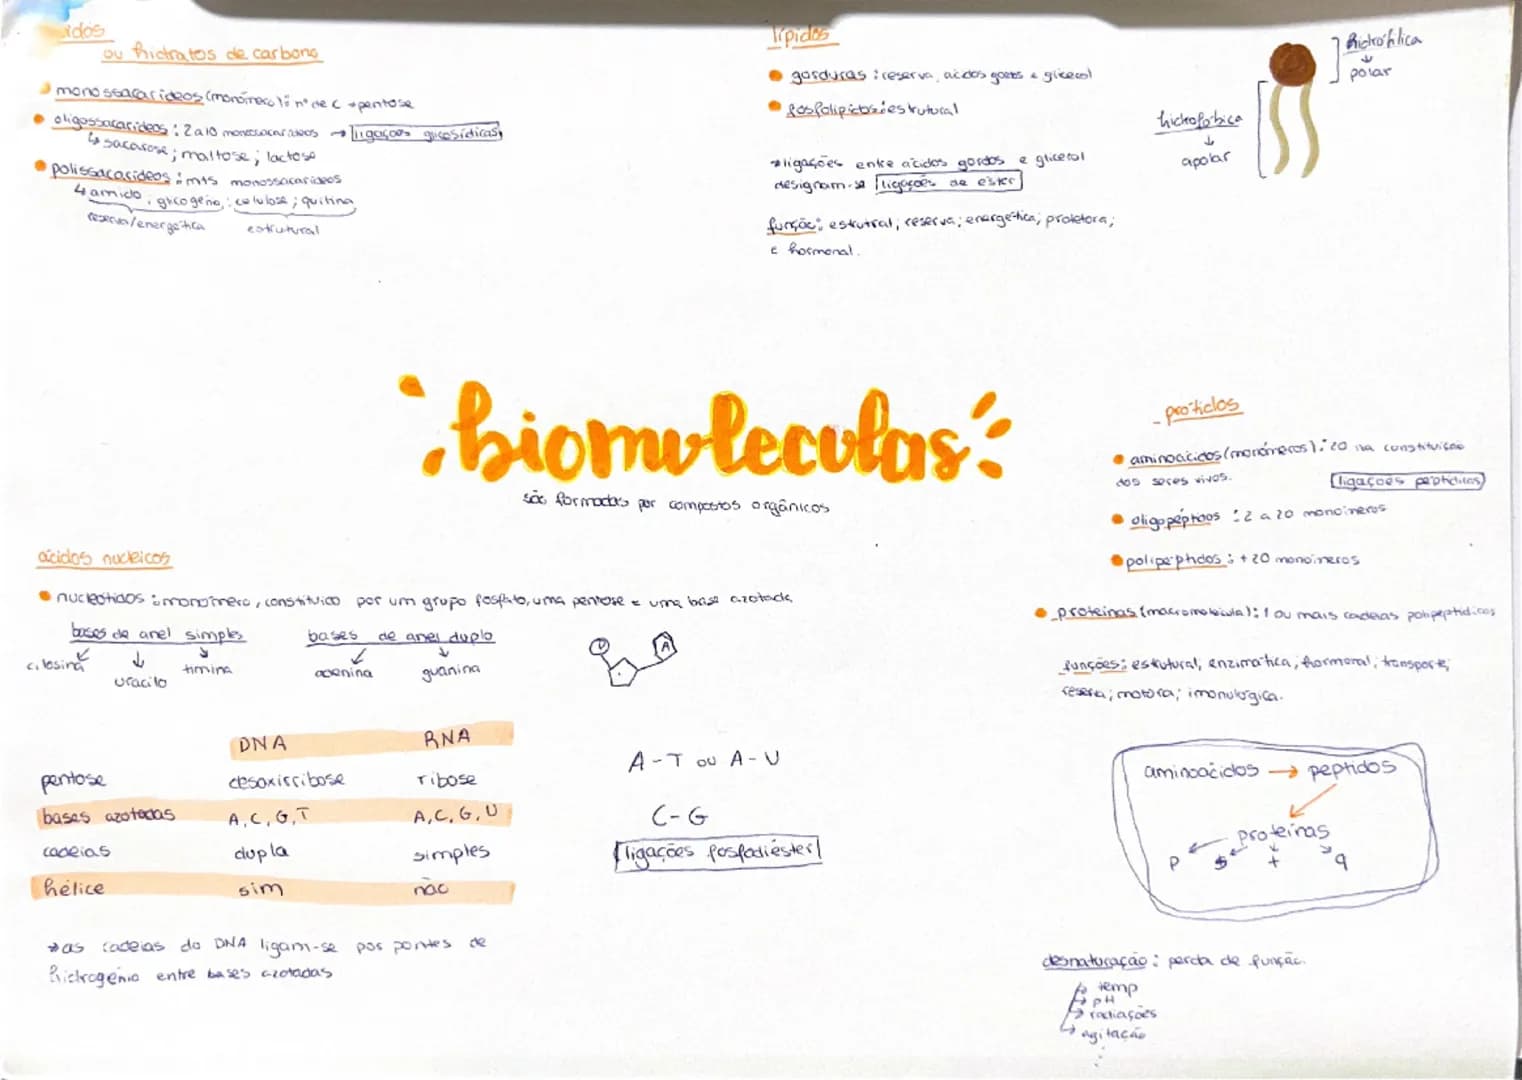 ou hidratos de carbono
monossacarídeos (monómero): nº de C → pentose
oligossacarídeos: 2 a 10 monossacarídeos → ligações glicosídicas
↳ sacarose; maltose; lactose
polissacarídeos: mts monossacarídeos
↳ amido, glicogénio; celulose; quitina
reserva/energética estrutural
lípidos
gorduras: reserva, ácidos gordos e glicerol
fosfolípidos: estrutural
*ligações entre ácidos gordos e glicerol
designam-se ligações de éster
função: estrutral; reserva; energética; protetora;
e hormonal.
hidrofílica
↓
polar
hidrofóbica
↓
apolar
biomoleculas
são formadas por compostos orgânicos
prótidos
aminoácidos (monómeros): 20 na constituição
dos seres vivos. ligações peptídicas
oligopéptidos: 2 a 20 monómeros
polipéptidos: +20 monómeros
proteínas (macromolécula): 1 ou mais cadeias polipeptídicas
funções: estrutural; enzimática; hormonal; transporte;
reserva; motora; imonulógica.
aminoácidos → peptidos
proteínas
P S T q
desnaturação: perda de função.
temp
pH
radiações
agitação
ácidos nucleicos
nucleotidos: monómero, constituído por um grupo fosfato, uma pentose e uma base azotada
bases de anel simples bases de anel duplo
citosina uracilo timina adenina guanina
A
DNA RNA
pentose desoxirribose ribose
bases azotadas A, C, G, T A, C, G, U
cadeias dupla simples
hélice sim não
A-T ou A-U
C-G
ligações fosfodiéster
*as cadeias do DNA ligam-se por pontes de
hidrogénio entre bases azotadas